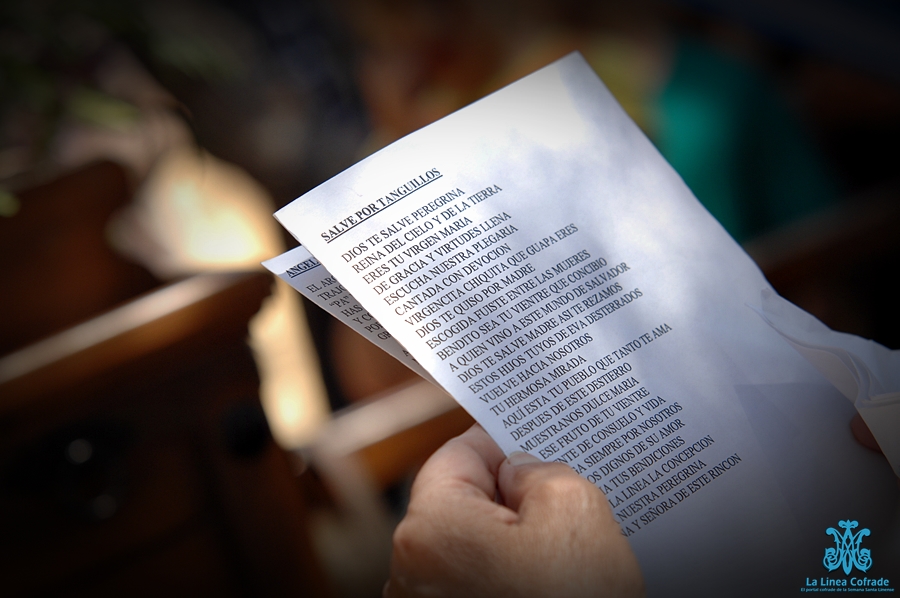 SALVE POR TANGUILLOS
DIOS TE SALVE PEREGRINA
REINA DEL CIELO Y DE LA TIERRA
ERES TU VIRGEN MARIA
DE GRACIA Y VIRTUDES LLENA
ESCUCHA NUESTRA PLEGARIA
CANTADA CON DEVOCION
VIRGENCITA CHIQUITA QUE GUAPA ERES
DIOS TE QUISO POR MADRE
ESCOGIDA FUISTE ENTRE LAS MUJERES
BENDITO SEA TU VIENTRE QUE CONCIBIO
A QUIEN VINO A ESTE MUNDO DE SALVADOR
DIOS TE SALVE MADRE ASI TE REZAMOS
ESTOS HIJOS TUYOS DE EVA DESTERRADOS
VUELVE HACIA NOSOTROS
TU HERMOSA MIRADA
AQUÍ ESTA TU PUEBLO QUE TANTO TE AMA
DESPUES DE ESTE DESTIERRO
MUESTRANOS DULCE MARIA
ESE FRUTO DE TU VIENTRE
DE CONSUELO Y VIDA
SIEMPRE POR NOSOTROS
DIGNOS DE SU AMOR
TUS BENDICIONES
LA LINEA LA CONCEPCION
NUESTRA PEREGRINA
Y SEÑORA DE ESTE RINCON
ANGEL
EL
La Linea Cofrade
El portal cofrade de la Semana Santa Linense